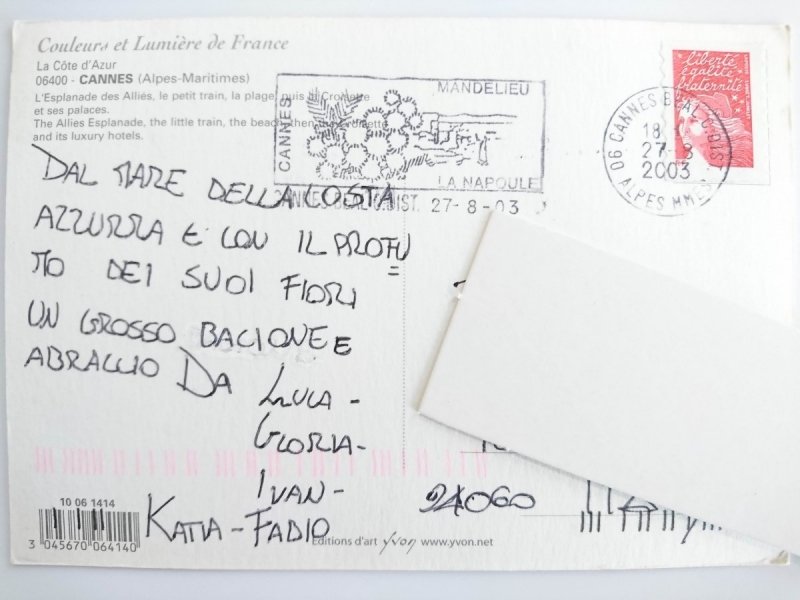 Couleurs et Lumière de France
La Côte d'Azur
06400 - CANNES (Alpes-Maritimes)
L'Esplanade des Alliés, le petit train, la plage, puis la Croisette
et ses palaces.
The Allies Esplanade, the little train, the beach, then the Croisette
and its luxury hotels.
CANNES
MANDELIEU
LA NAPOULE
CANNES BEAUSOIST. 27-8-03
liberté
égalité
fraternité
06 CANNES
18
27-8
2003
ALPES MMES
DAL MARE DELLA COSTA
AZZURRA E CON IL PROFU
MO DEI SUOI FIORI
UN GROSSO BACIONE E
ABRACCIO DA LUCA -
GLORIA -
IVAN -
KATIA - FABIO
24060
10 06 1414
3 045670 064140
Editions d'art yvon www.yvon.net